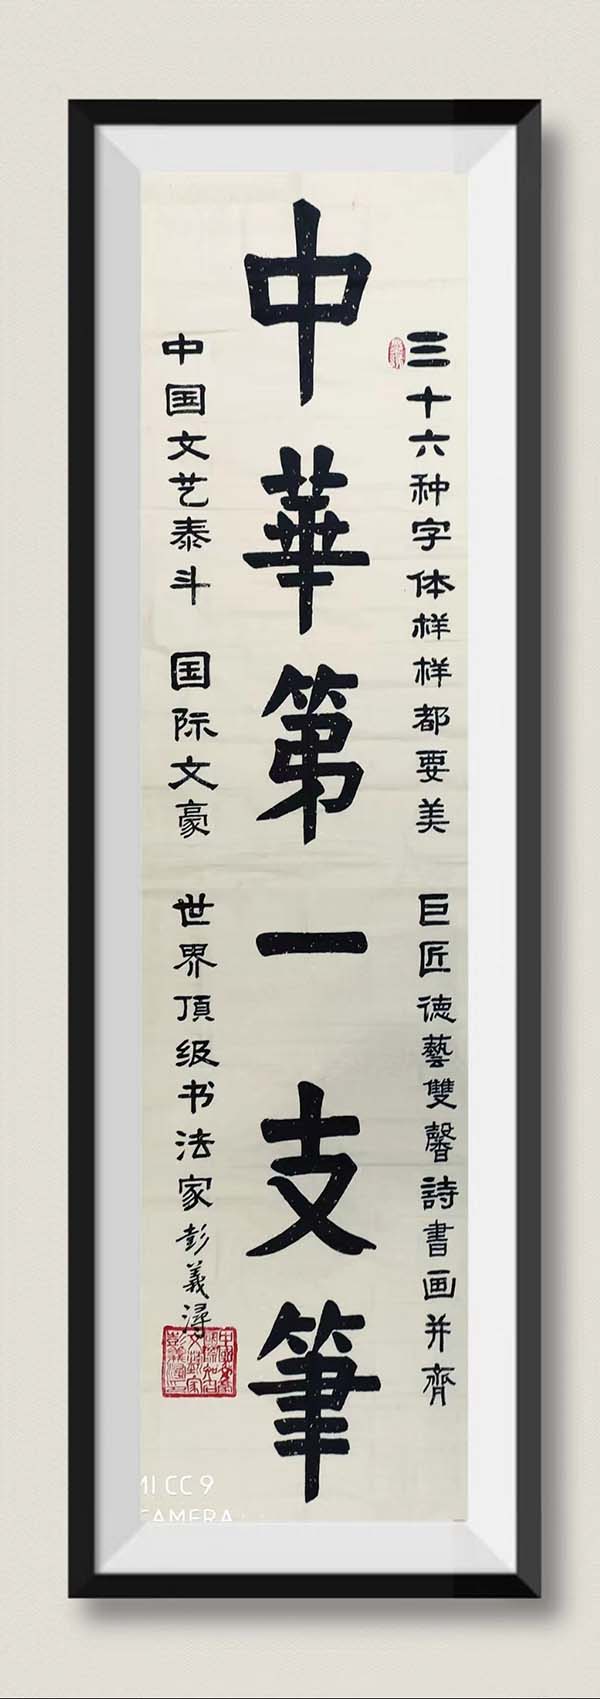 三十六种字体样样都要美 巨匠德藝雙馨詩書画并齊
中華第一支筆
中国文艺泰斗 国际文豪 世界頂级书法家彭義潯
MI CC 9
CAMERA